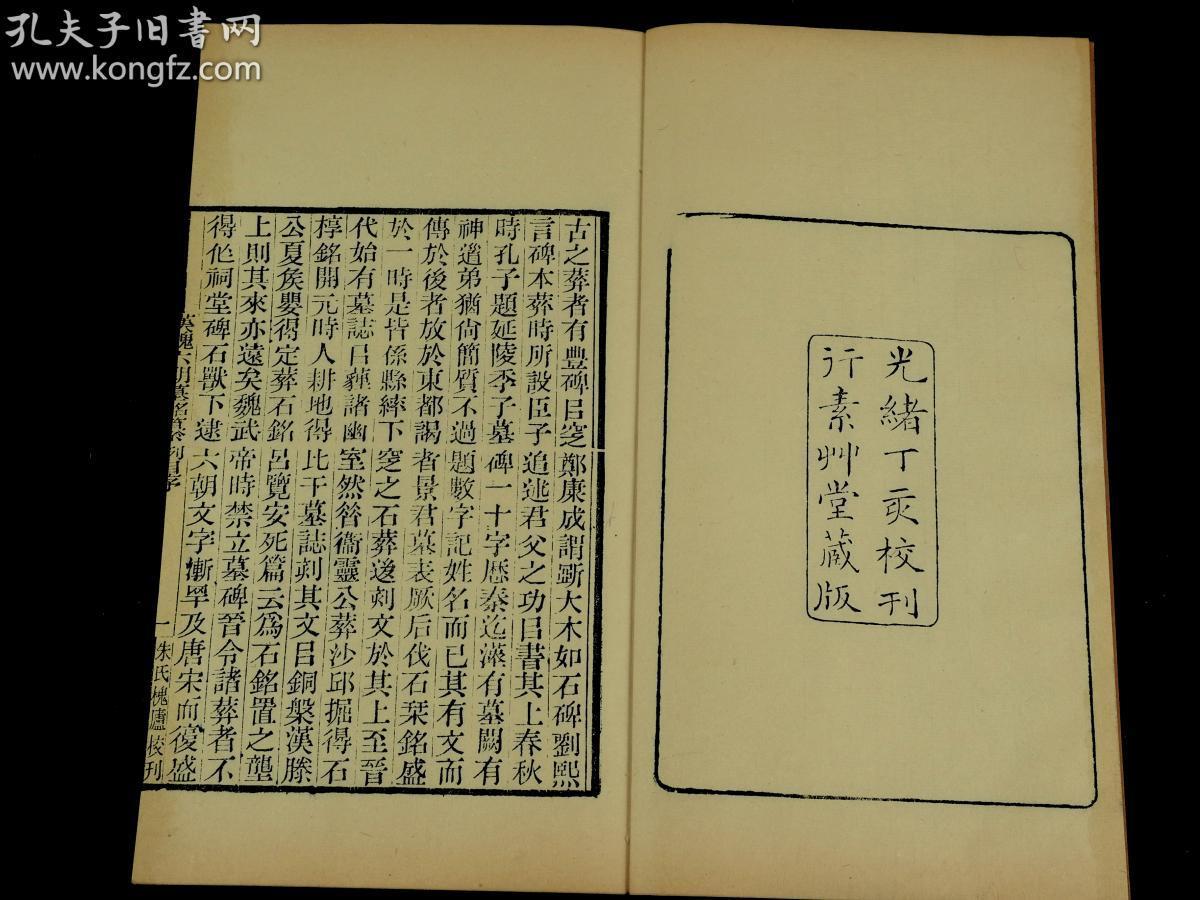 孔夫子旧书网
www.kongfz.com
光緒丁亥校刊
行素艸堂藏版
古之葬者有豐碑㠯窆鄭康成謂斲大木如石碑劉熙
言碑本葬時所設臣子追述君父之功㠯書其上春秋
時孔子題延陵季子墓碑一十字歷秦迄漢有墓闕有
神道弟猶尙簡質不過題數字記姓名而已其有文而
傳於後者放於東都謁者景君墓表厥后伐石栞銘盛
於一時是皆係縣繂下窆之石葬後刻文於其上至晉
代始有墓誌㠯薶諸幽室然昝衞靈公葬沙邱掘得石
椁銘開元時人耕地得比干墓誌刻其文㠯銅槃漢滕
公夏矦嬰得定葬石銘呂覽安死篇云爲石銘置之壟
上則其來亦遠矣魏武帝時禁立墓碑晉令諸葬者不
得作祠堂碑石獸下逮六朝文字漸罕及唐宋而復盛
漢魏六朝墓銘纂例自序
一
朱氏槐廬校刊